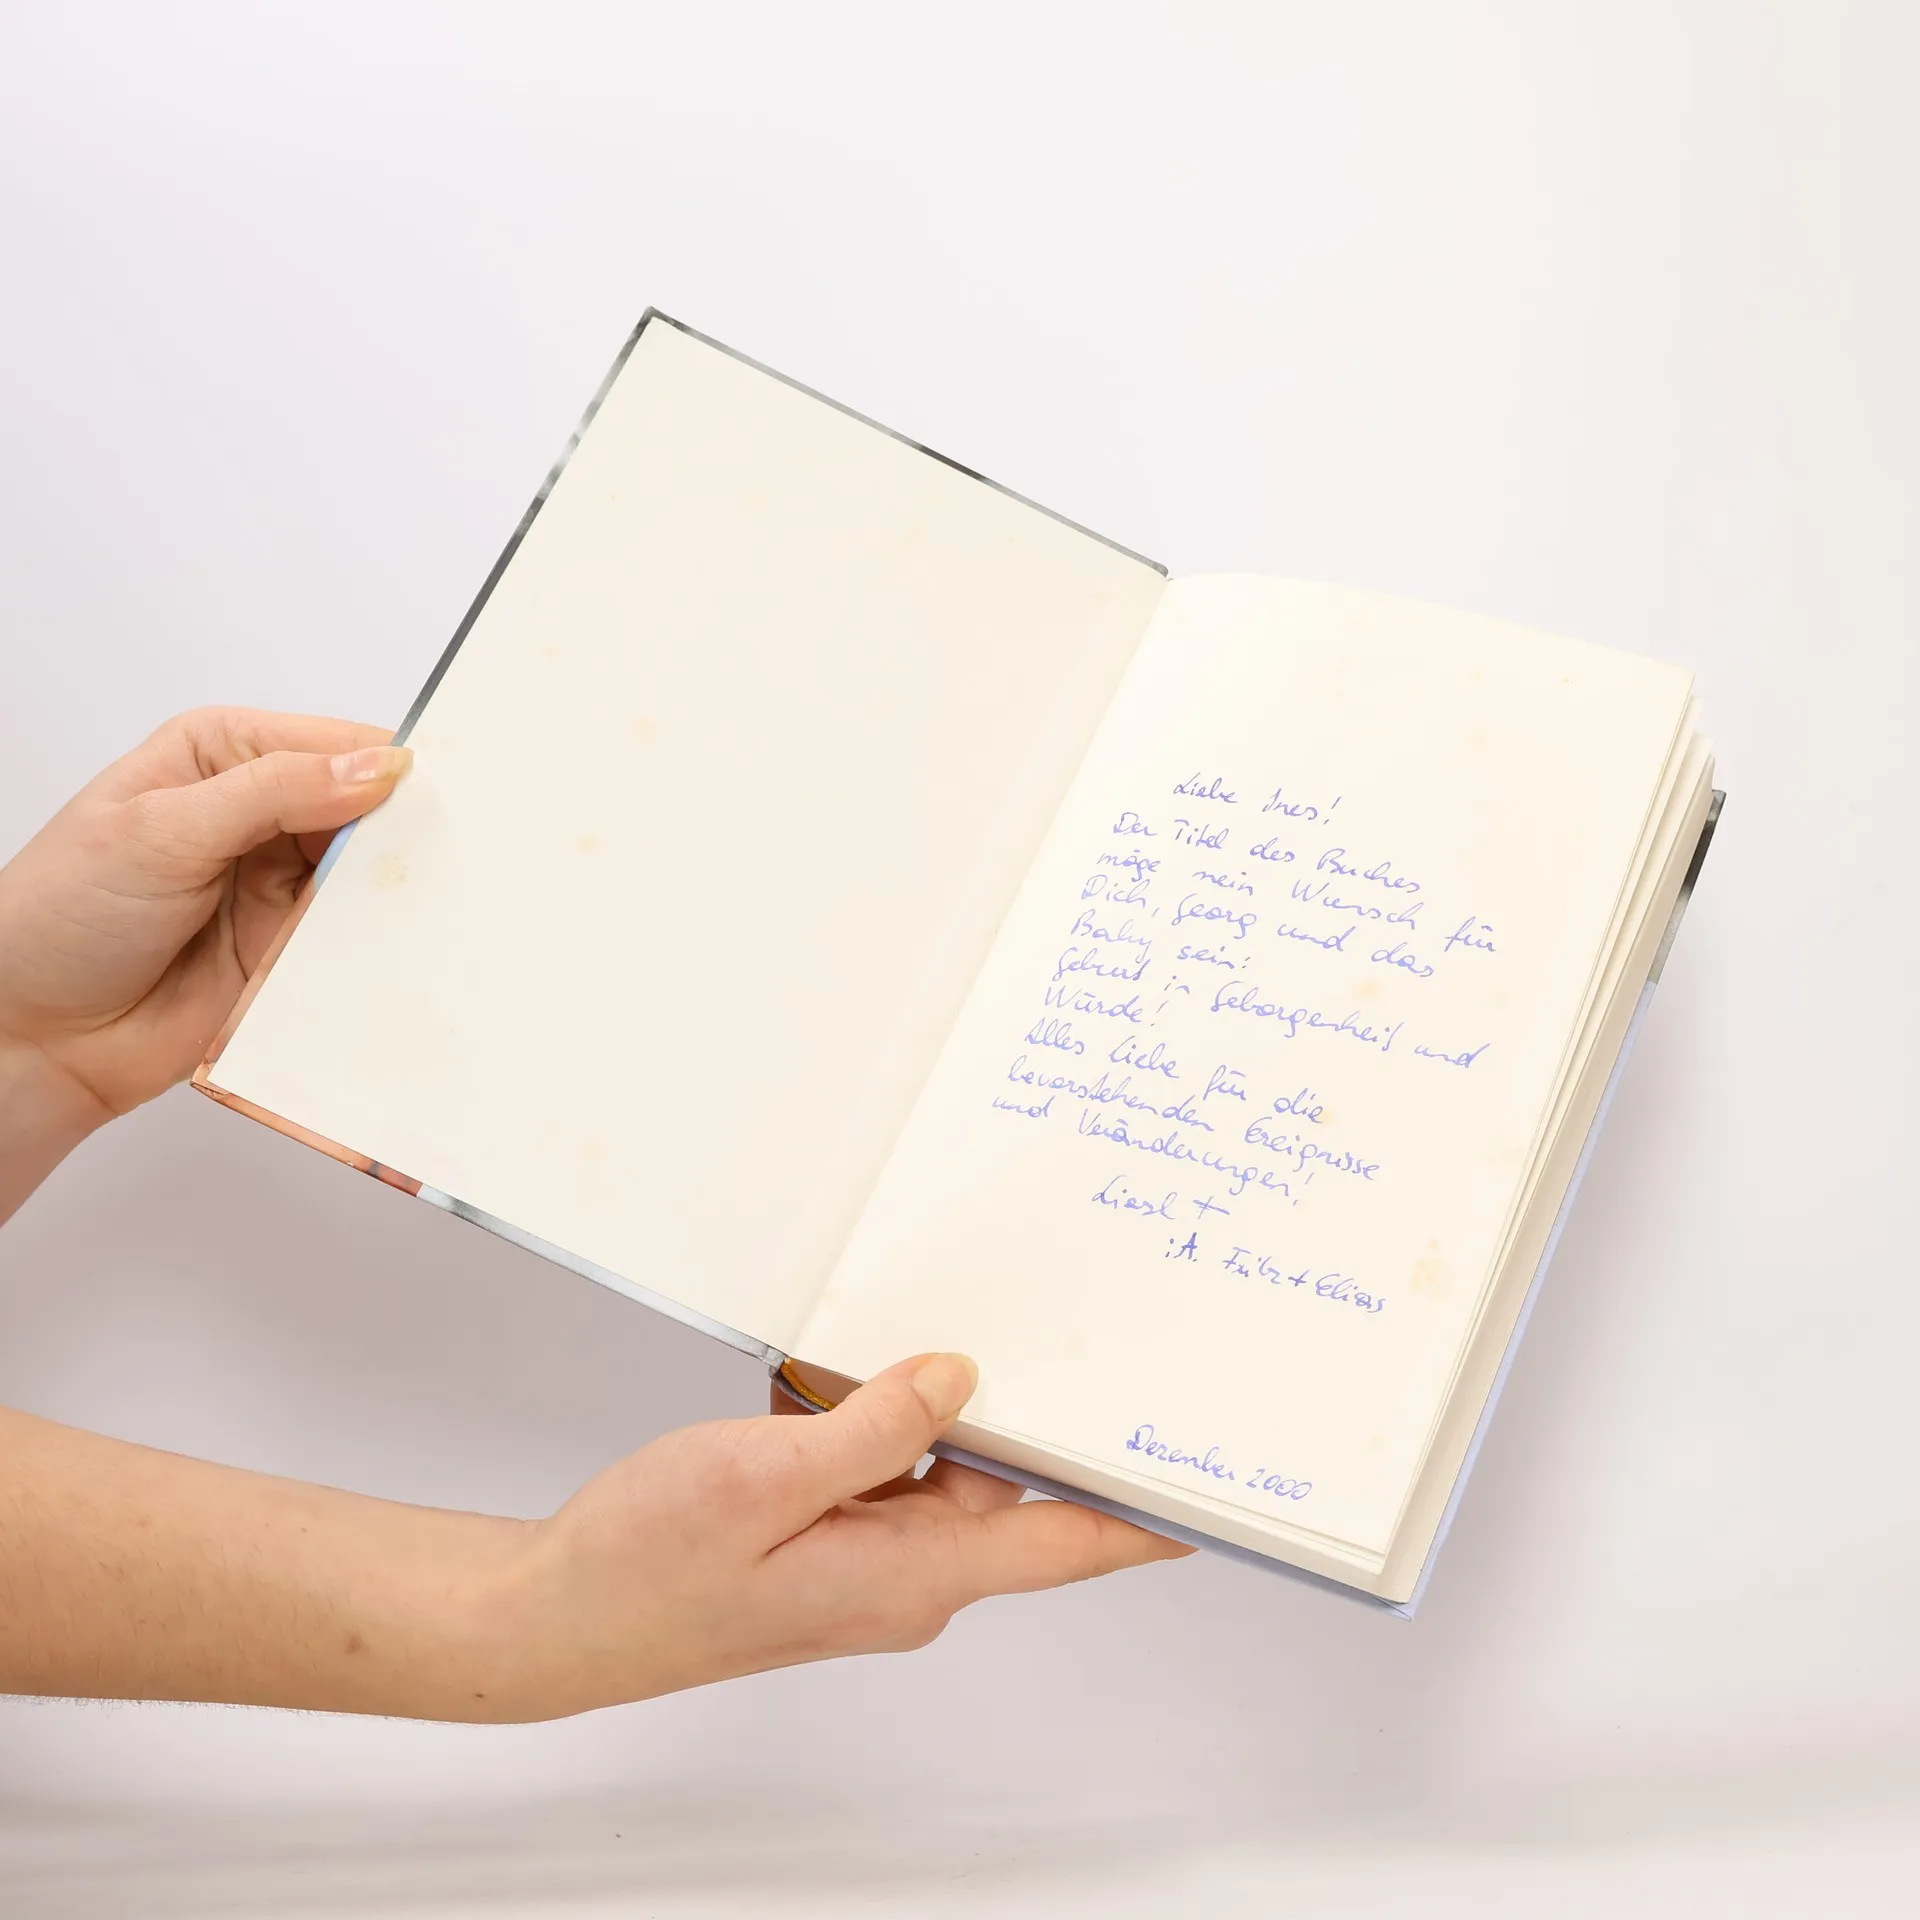 Liebe Ines!
Der Titel des Buches
möge mein Wunsch für
Dich, Georg und das
Baby sein:
Geburt in Geborgenheit und
Würde!
Alles Liebe für die
bevorstehenden Ereignisse
und Veränderungen!
Liesl +
i.A. Fritz + Elias
Dezember 2000